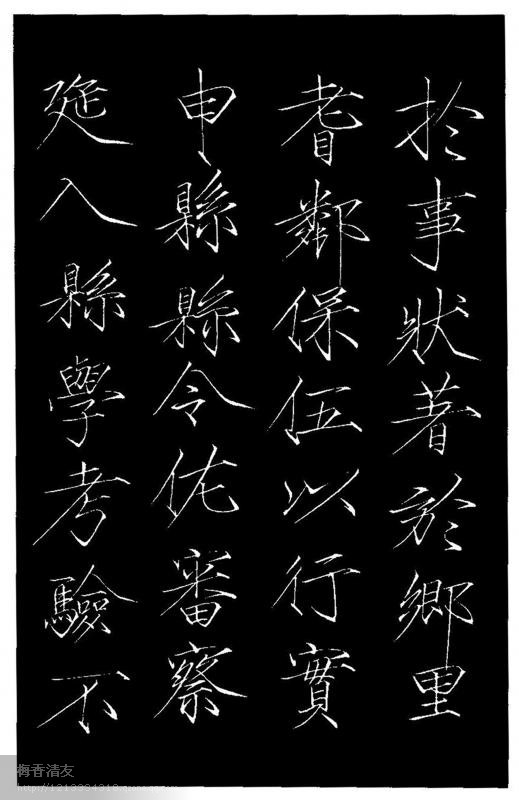 於事狀著於鄉里
耆鄰保伍以行實
申縣縣令佐審察
延入縣學考驗不
梅香清友